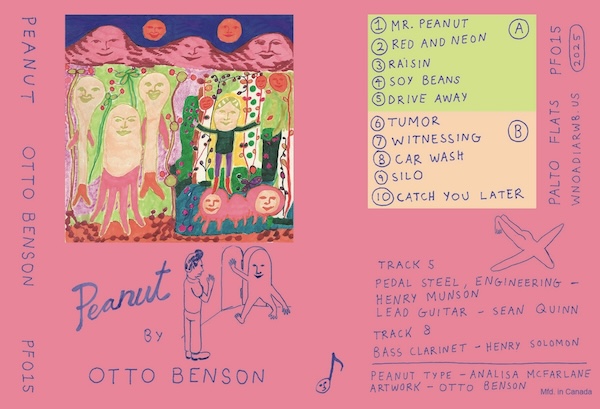 PEANUT OTTO BENSON PF015
Peanut
BY
OTTO BENSON
1 MR. PEANUT
2 RED AND NEON
3 RAISIN
4 SOY BEANS
5 DRIVE AWAY
A
6 TUMOR
7 WITNESSING
8 CAR WASH
9 SILO
10 CATCH YOU LATER
B
PALTO FLATS PF015 2025
WNOADIARWB.US
TRACK 5
PEDAL STEEL, ENGINEERING -
HENRY MUNSON
LEAD GUITAR - SEAN QUINN
TRACK 8
BASS CLARINET - HENRY SOLOMON
PEANUT TYPE - ANALISA MCFARLANE
ARTWORK - OTTO BENSON
Mfd. in Canada